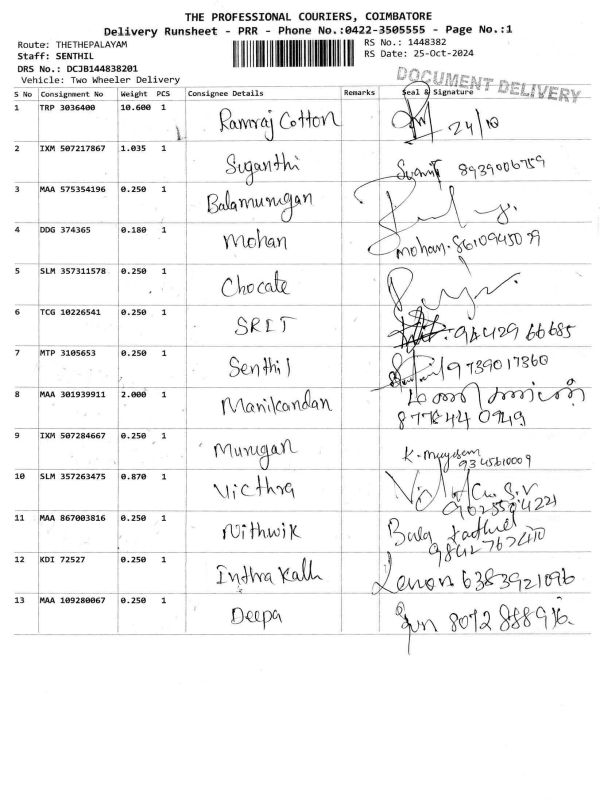 THE PROFESSIONAL COURIERS, COIMBATORE
Delivery Runsheet - PRR - Phone No.:0422-3505555 - Page No.:1
Route: THETHEPALAYAM RS No.: 1448382
Staff: SENTHIL RS Date: 25-Oct-2024
DRS No.: DCJB144838201
Vehicle: Two Wheeler Delivery
DOCUMENT DELIVERY
S No Consignment No Weight PCS Consignee Details Remarks Seal & Signature
1 TRP 3036400 10.600 1 Ramraj Cotton 24/10
2 IXM 507217867 1.035 1 Suganthi 8939006759
3 MAA 575354196 0.250 1 Balamurugan
4 DDG 374365 0.180 1 Mohan mohan. 8610945079
5 SLM 357311578 0.250 1 Chocate
6 TCG 10226541 0.250 1 SRET 98429 66685
7 MTP 3105653 0.250 1 Senthil 9739017360
8 MAA 301939911 2.000 1 Manikandan
8778440949
9 IXM 507284667 0.250 1 Murugan
9345610009
10 SLM 357263475 0.870 1 Victhra
11 MAA 867003816 0.250 1 Nithwik Bala
12 KDI 72527 0.250 1 Inthra Kalh 6383921096
13 MAA 109280067 0.250 1 Deepa 8072 888916